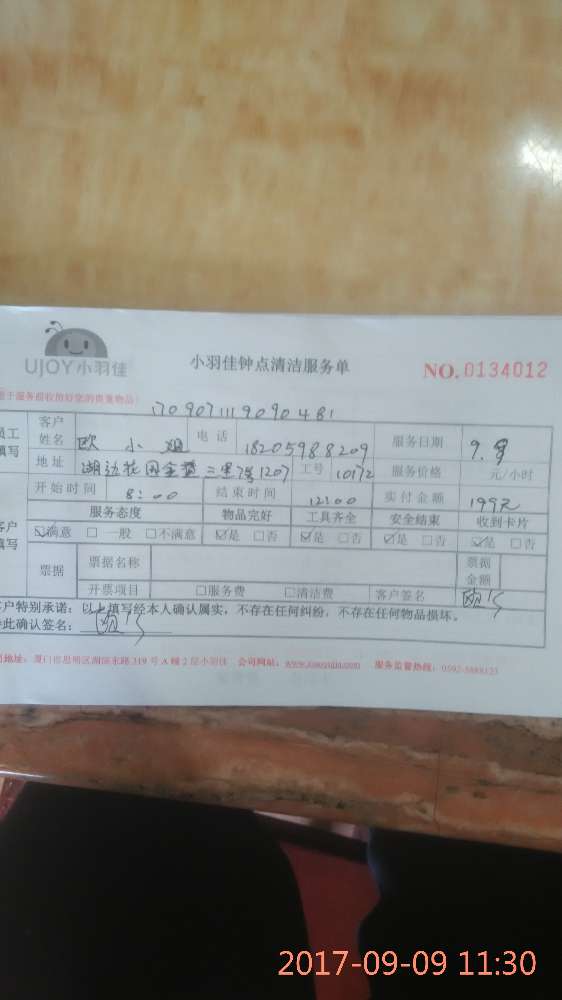 UJOY小羽佳
小羽佳钟点清洁服务单
NO.0134012
于服务前收拾好您的贵重物品）
1709071119090481
员工
填写
客户
姓名 欧小姐 电话 18205988209 服务日期 9.9
地址 湖边花园 三里 1207 工号 10172 服务价格 元/小时
开始时间 8:00 结束时间 12:00 实付金额 199元
客户
填写
服务态度 物品完好 工具齐全 安全结束 收到卡片
☑满意 □一般 □不满意 ☑是 □否 ☑是 □否 ☑是 □否 ☑是 □否
票据 票据名称 票据
金额
开票项目 □服务费 □清洁费 客户签名
客户特别承诺：以上填写经本人确认属实，不存在任何纠纷，不存在任何物品损坏。
此确认签名：
地址：厦门市思明区湖滨东路319号A幢2层小羽佳 公司网站：www.xiaoyujia.com 服务监督热线：0592-5888123
2017-09-09 11:30